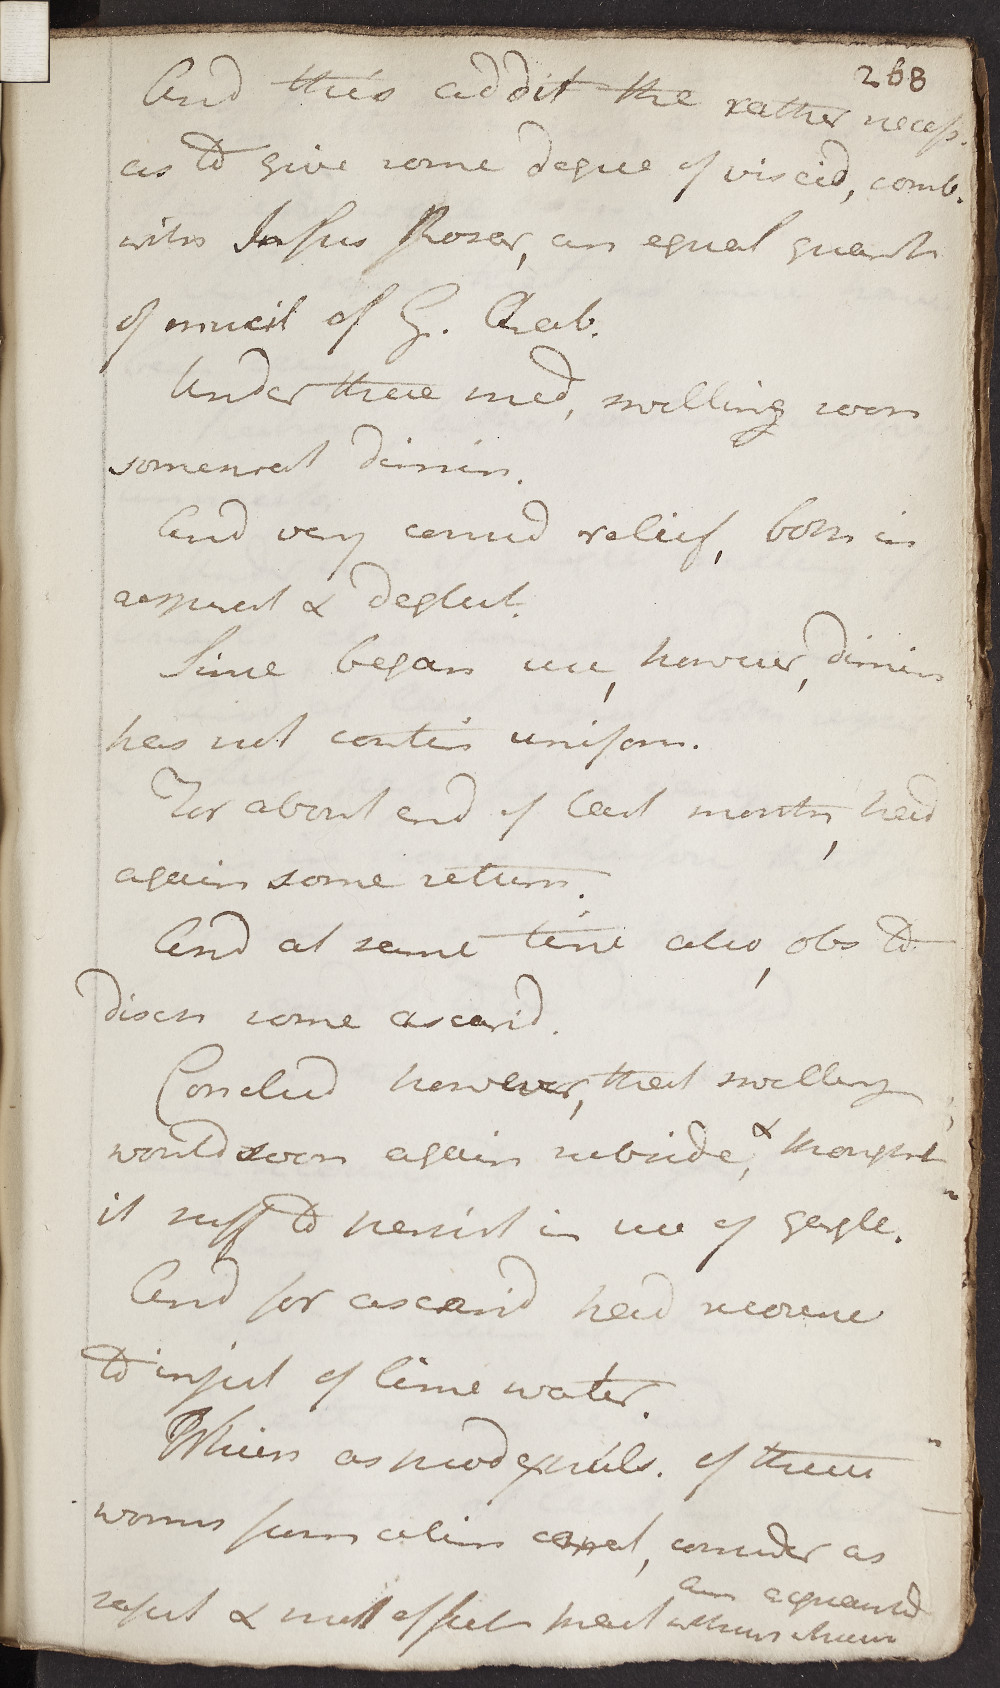 268
And this addit the rather necess.
as to give some degree of viscid, comb.
with Infus Rosar, an equal quant
of mucil of G. Arab.
Under these med, swelling soon
somewhat dimin.
And very consid relief, both in
respirat & deglut.
Since began use, however, dimin
has not contin uniform.
For about end of last month, had
again some return.
And at same time also, obs to
disch some ascarid.
Conclud however, that swelling
would soon again subside, & thought
it suff to persist in use of gargle.
And for ascarid had recourse
to inject of lime water.
Which as prod expuls. of these
worms from alim canal, consider as
safest & most effect that am acquainted
with